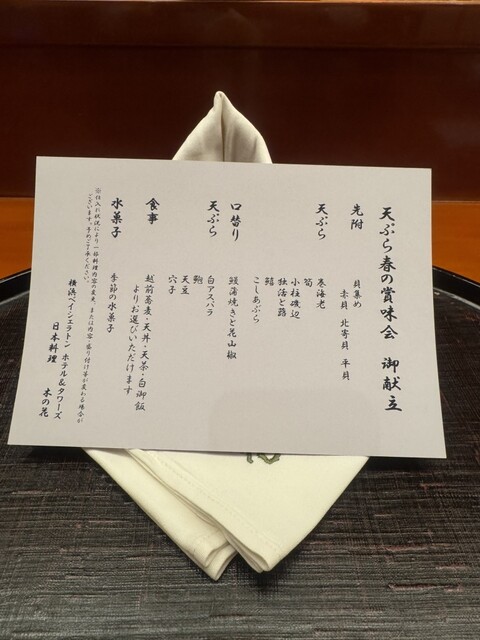 天ぷら春の賞味会　御献立
先附
貝集め
赤貝　北寄貝　平貝
天ぷら
巻海老
筍
小柱磯辺
独活と蕗
鱚
こしあぶら
口替り
鰻蒲焼きと花山椒
天ぷら
白アスパラ
鮑
天豆
穴子
食事
越前蕎麦・天丼・天茶・白御飯
よりお選びいただけます
水菓子
季節の水菓子
※仕入れ状況により一部料理内容の変更、または内容・盛り付け等が変わる場合が
ございます。予めご了承ください。
横浜ベイシェラトン ホテル&タワーズ
日本料理　木の花